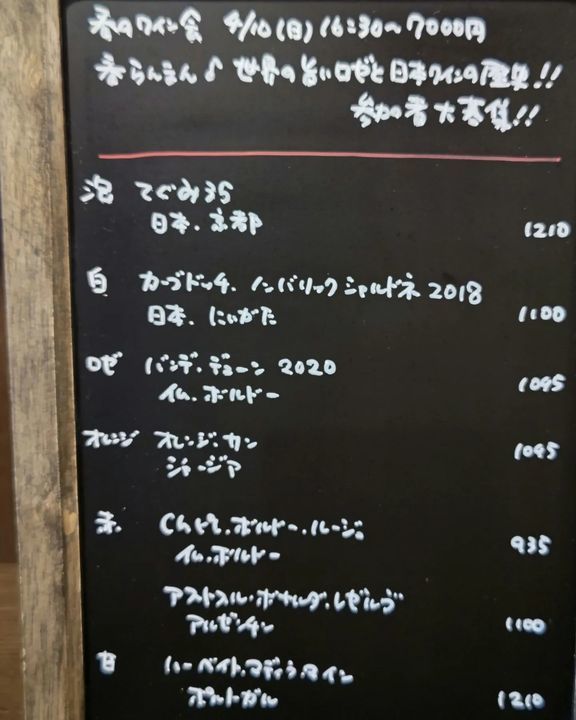 春のワイン会 4/10(日)16:30〜7000円
春らんまん♪世界の旨いロゼと日本ワインの歴史!!
参加者大募集!!
泡 てぐみ35
日本.京都 1210
白 カーブドッチ.ノンバリックシャルドネ2018
日本.にいがた 1100
ロゼ バンデ.デューン2020
仏.ボルドー 1095
オレンジ オレンジ.カン 1045
ジョージア
赤. Ch.ボルドー.ルージュ
仏.ボルドー 935
アストスル.ボナルダ.レゼルヴ
アルゼンチン 1100
甘 ハーベイト.マディラ.ワイン
ポルトガル 1210